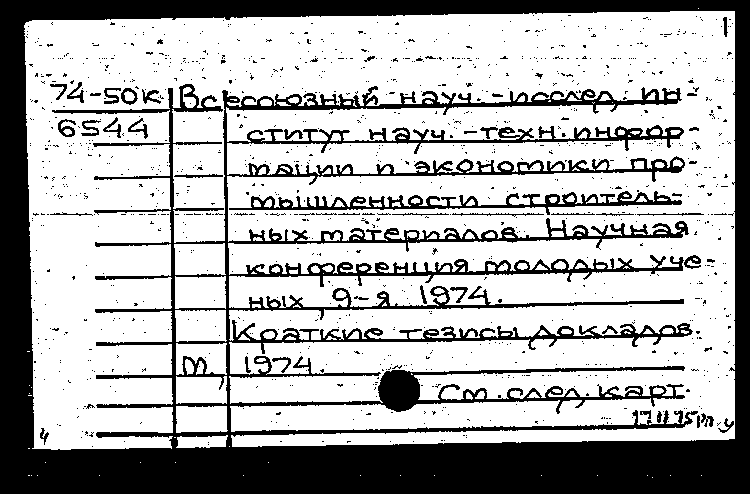 1
74-50к Всесоюзный науч.-исслед. ин-
6544 ститут науч.-техн. инфор-
мации и экономики про-
мышленности строитель-
ных материалов. Научная
конференция молодых уче-
ных, 9-я. 1974.
Краткие тезисы докладов.
М., 1974.
См. след. карт.
17 II 75 рп у
4